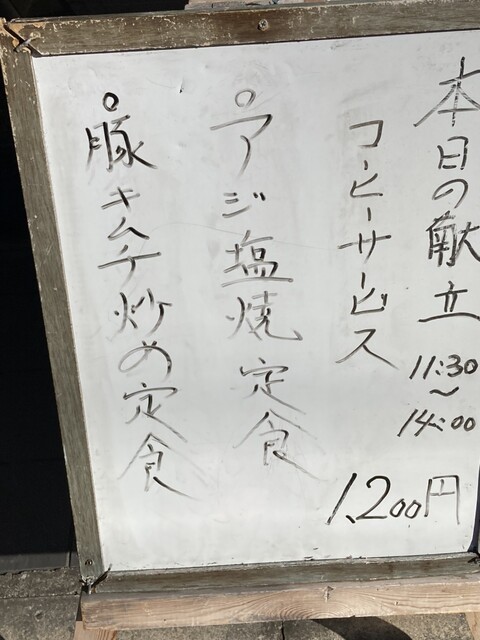 本日の献立
11:30
~
14:00
コーヒーサービス
1,200円
○アジ塩焼定食
○豚キムチ炒め定食